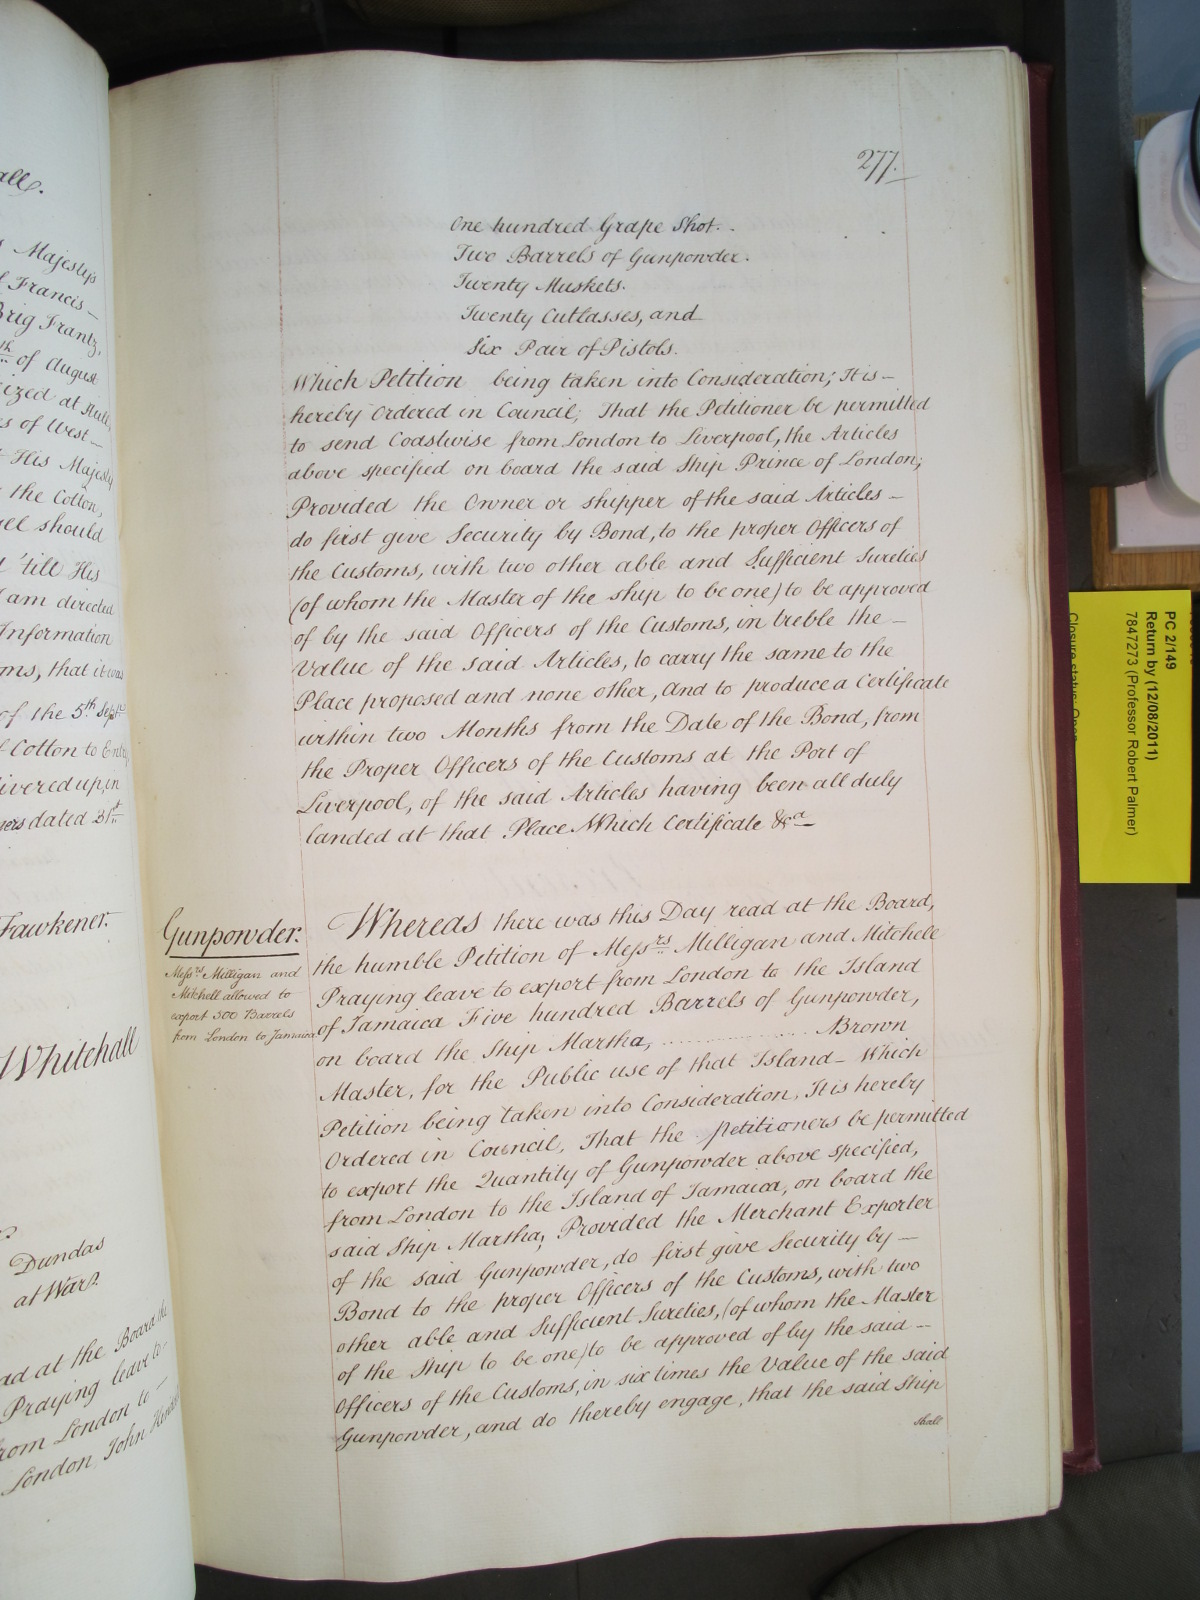 all.
Majesty's
Francis
Brig Frantz,
th of August
ized at Hull
s of West
His Majesty
the Cotton,
should
'till His
am directed
Information
ms, that it was
of the 5th Septr
Cotton to Entry
ivered up, in
ners dated 31st
Fawkener.
Whitehall
Dundas
at War.
ad at the Board the
Praying leave to
rom London to
London, John
277.
One hundred Grape Shot.
Two Barrels of Gunpowder.
Twenty Muskets.
Twenty Cutlasses, and
Six Pair of Pistols.
Which Petition being taken into Consideration; It is
hereby Ordered in Council, That the Petitioner be permitted
to send Coastwise from London to Liverpool, the Articles
above specified on board the said Ship Prince of London;
Provided the Owner or shipper of the said Articles
do first give Security by Bond, to the proper Officers of
the Customs, with two other able and Sufficient Sureties
(of whom the Master of the ship to be one) to be approved
of by the said Officers of the Customs, in treble the
Value of the said Articles, to carry the same to the
Place proposed and none other, and to produce a Certificate
within two Months from the Date of the Bond, from
the Proper Officers of the Customs at the Port of
Liverpool, of the said Articles having been all duly
landed at that Place Which Certificate &ca
Gunpowder.
Messrs Milligan and
Mitchell allowed to
export 500 Barrels
from London to Jamaica
Whereas there was this Day read at the Board,
the humble Petition of Messrs Milligan and Mitchell
Praying leave to export from London to the Island
of Jamaica Five hundred Barrels of Gunpowder,
on board the Ship Martha, .............. Brown
Master, for the Public use of that Island - Which
Petition being taken into Consideration, It is hereby
Ordered in Council, That the petitioners be permitted
to export the Quantity of Gunpowder above specified,
from London to the Island of Jamaica, on board the
said Ship Martha; Provided the Merchant Exporter
of the said Gunpowder, do first give Security by
Bond to the proper Officers of the Customs, with two
other able and Sufficient Sureties, (of whom the Master
of the Ship to be one) to be approved of by the said
Officers of the Customs, in six times the Value of the said
Gunpowder, and do thereby engage, that the said Ship
shall
PC 2/149
Return by (12/08/2011)
7847273 (Professor Robert Palmer)
Closure status: Open